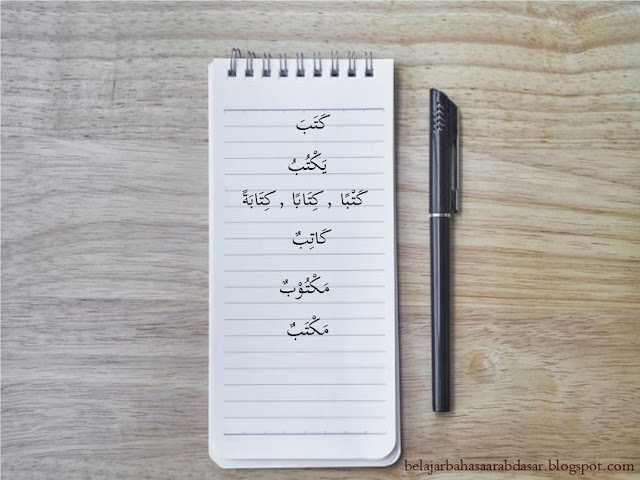 كَتَبَ
يَكْتُبُ
كَتْبًا , كِتَابًا , كِتَابَةً
كَاتِبٌ
مَكْتُوْبٌ
مَكْتَبٌ
belajarbahasaarabdasar.blogspot.com